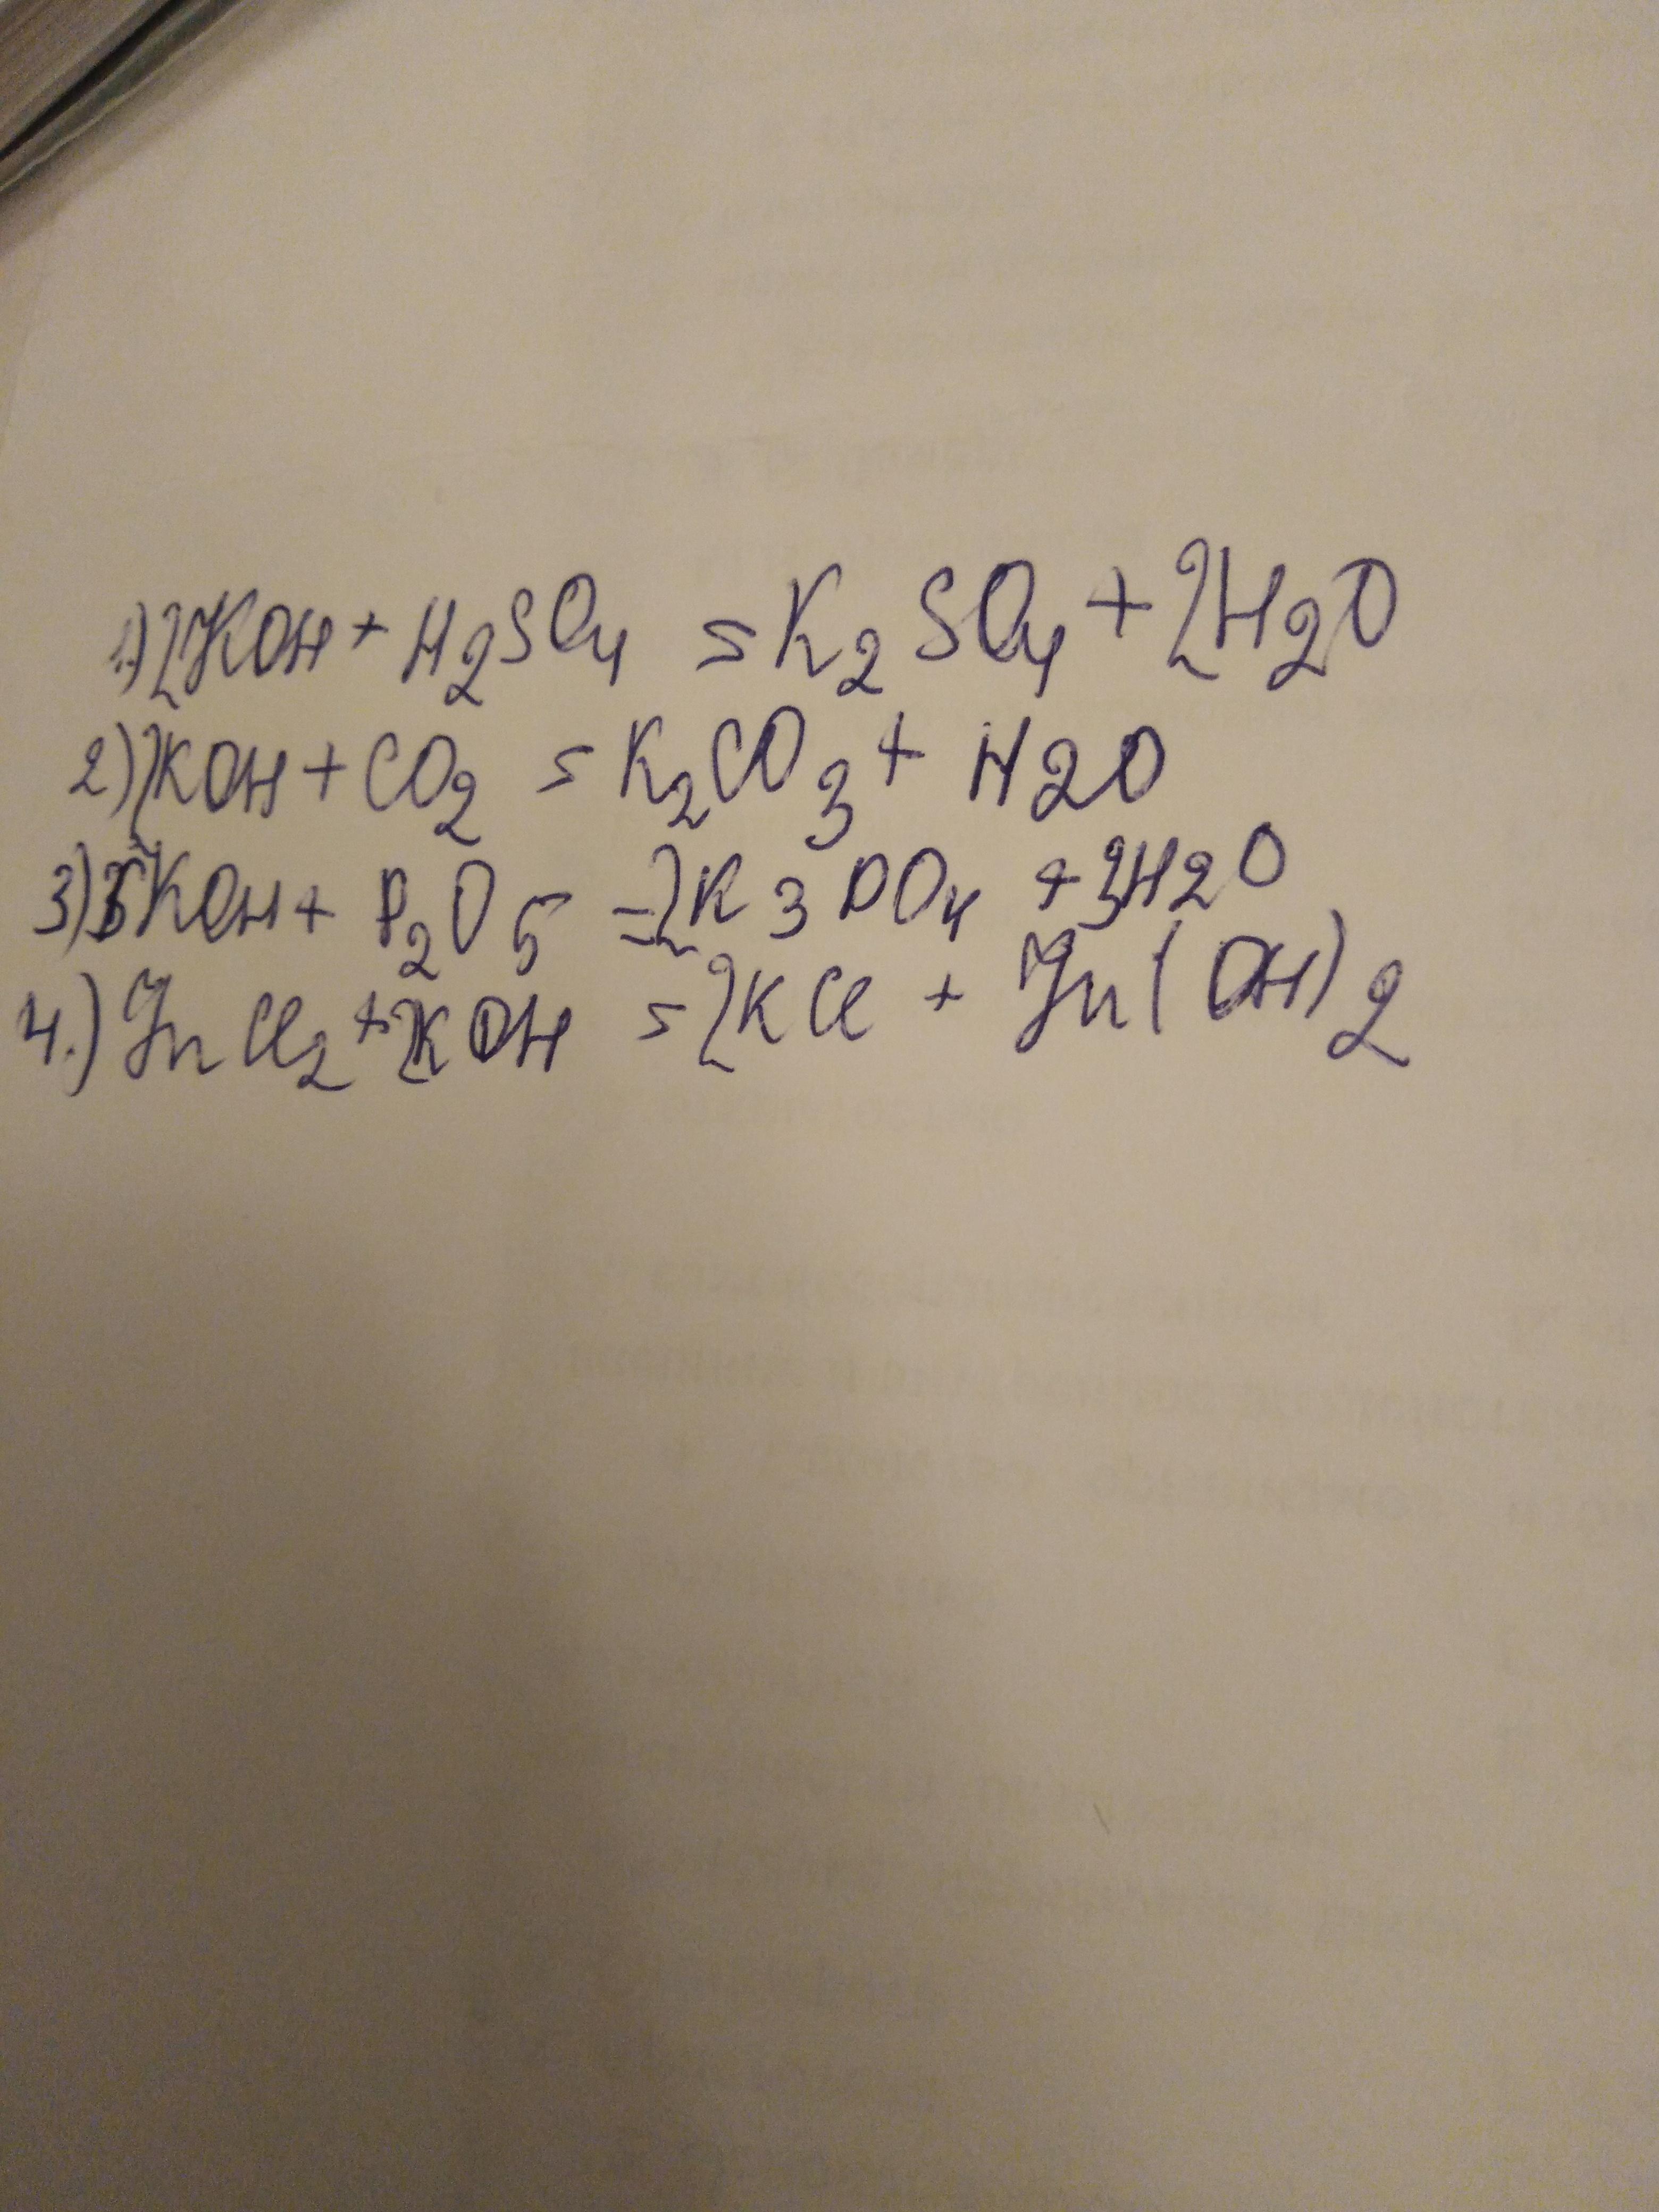 1.) 2KOH + H2SO4 = K2SO4 + 2H2O
2) 2KOH + CO2 = K2CO3 + H2O
3) 6KOH + P2O5 = 2K3PO4 + 3H2O
4.) ZnCl2 + 2KOH = 2KCl + Zn(OH)2